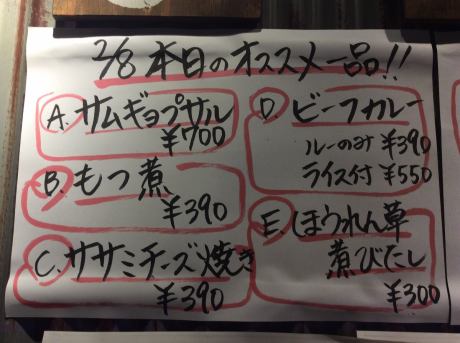 2/8 本日のオススメ一品!!
A. サムギョプサル
¥700
B. もつ煮
¥390
C. ササミチーズ焼き
¥390
D. ビーフカレー
ルーのみ ¥390
ライス付 ¥550
E. ほうれん草
煮びたし
¥300